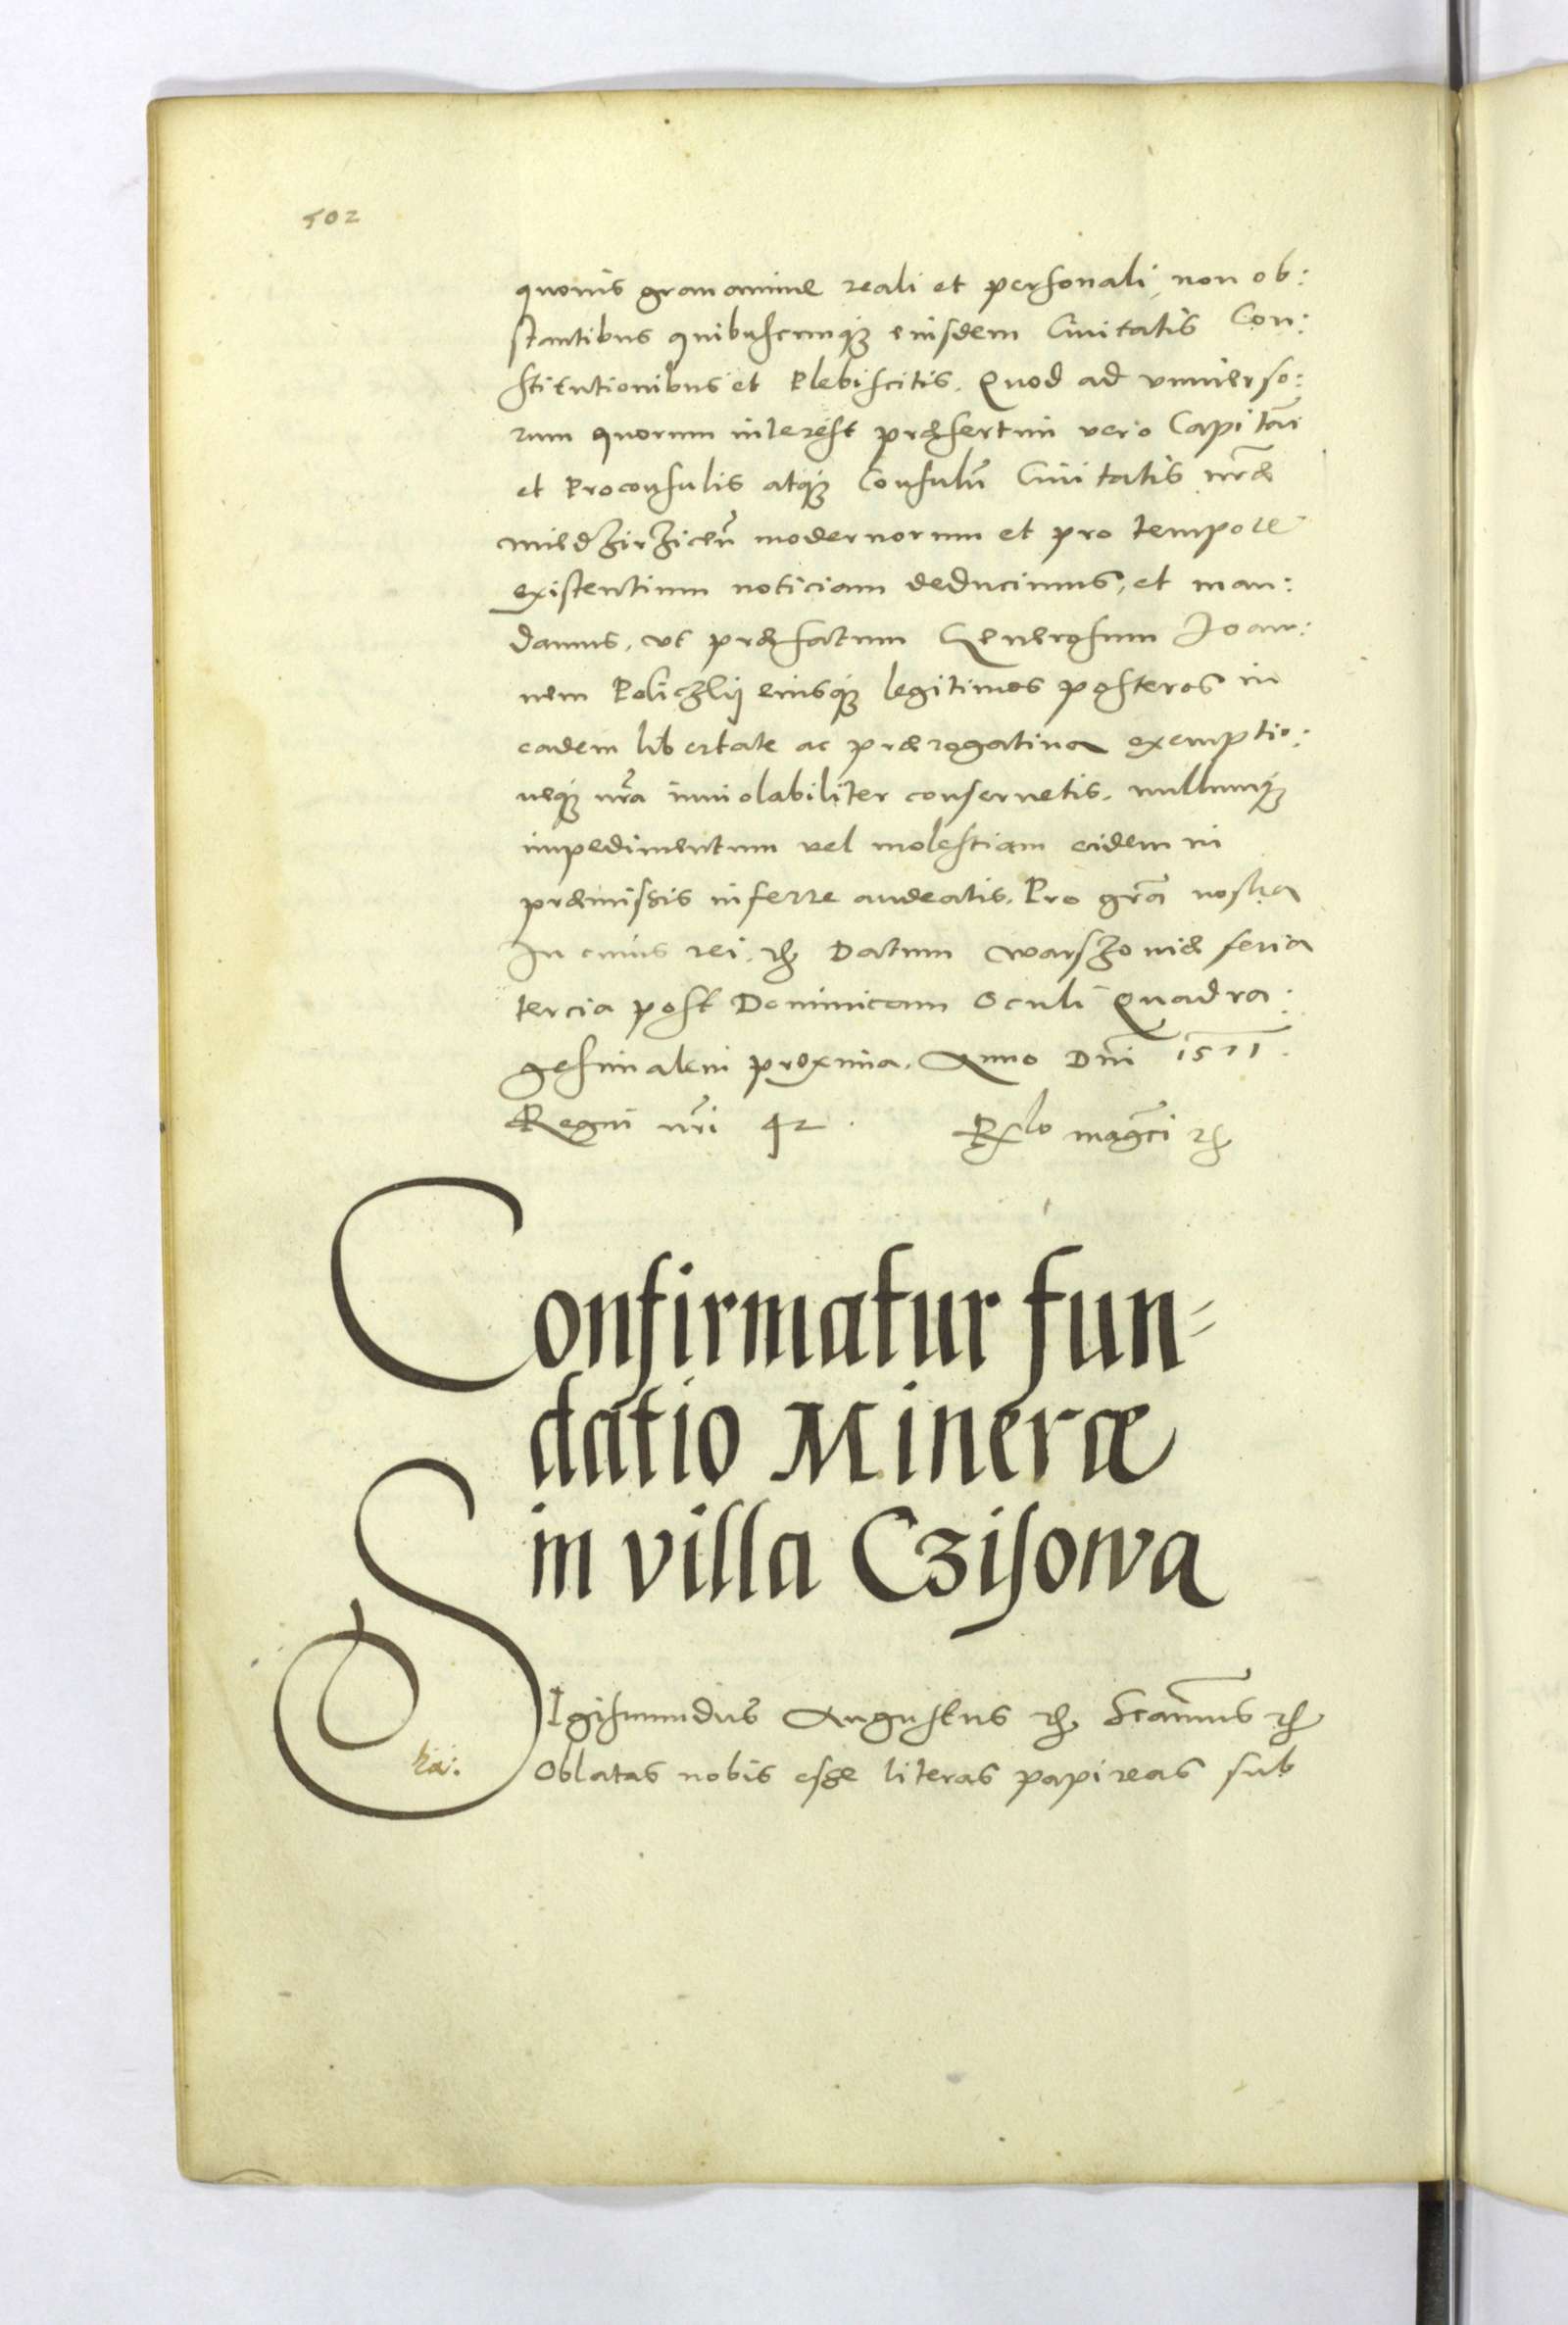 502
quouis grauamine reali et personali, non ob:
stantibus quibuscunq; eiusdem Ciuitatis Con:
stitutionibus et Plebiscitis. Quod ad vniuerso:
rum quorum interest præsertim vero Capitāi
et Proconsulis atq; Consulū Ciuitatis nr̄æ
miedzirziceñ modernorum et pro tempore
existentium noticiam deducimus, et man:
damus, vt præfatum Generosum Joan:
nem Policzlij eiusq; legitimos posteros in
eadem libertate ac prærogatiua exemptio:
neq; nr̄a inuiolabiliter conseruetis, nullumq;
impedimentum vel molestiam eidem in
præmissis inferre audeatis. Pro gr̄a nostra
In cuius rei. etc. Datum warszouiæ feria
tercia post Dominicam Oculi Quadra:
gesimalem proxima. Anno Dn̄i 1571.
Regni nr̄i 42. Rlo magc̄i etc.
Confirmatur fun=
datio Mineræ
in villa Czisowa
SIgismundus Augustus etc. Scāmus etc.
Oblatas nobis esse literas papireas sub